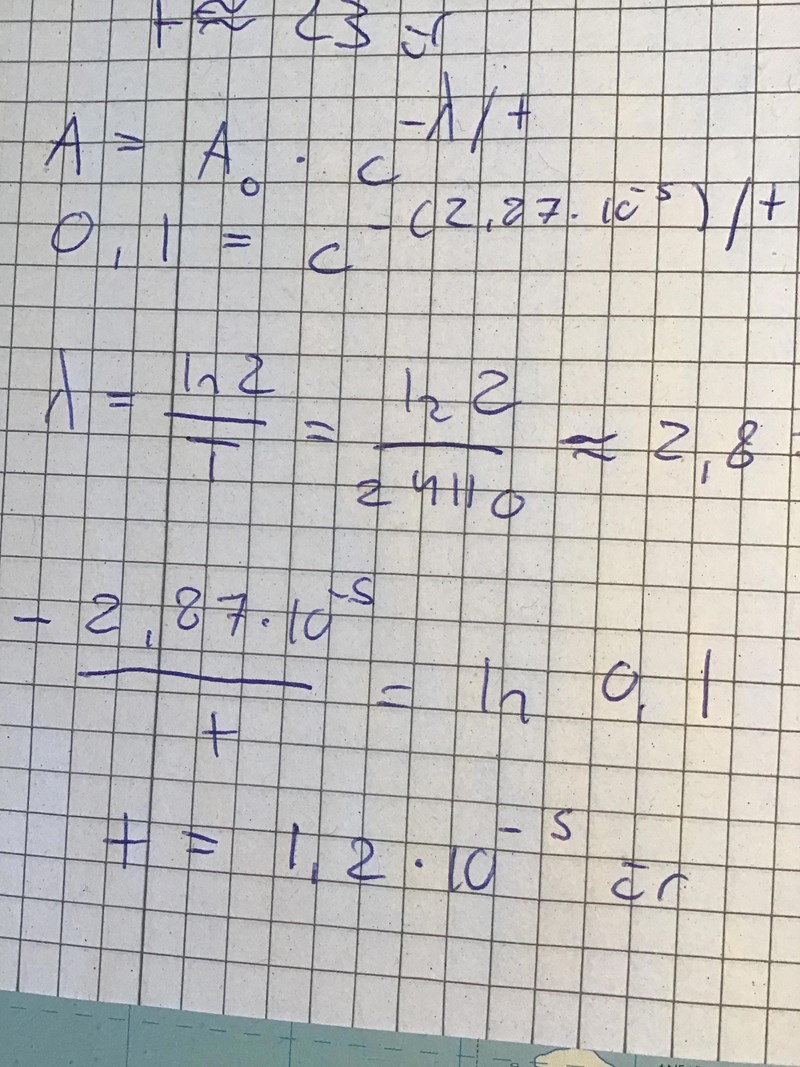 t ≈ 23 år
A = A₀ · e^-λ/t
0,1 = e^-(2,87·10^-5)/t
λ = ln2/T = ln2/24110 ≈ 2,8
-2,87·10^-5/t = ln 0,1
t = 1,2·10^-5 år